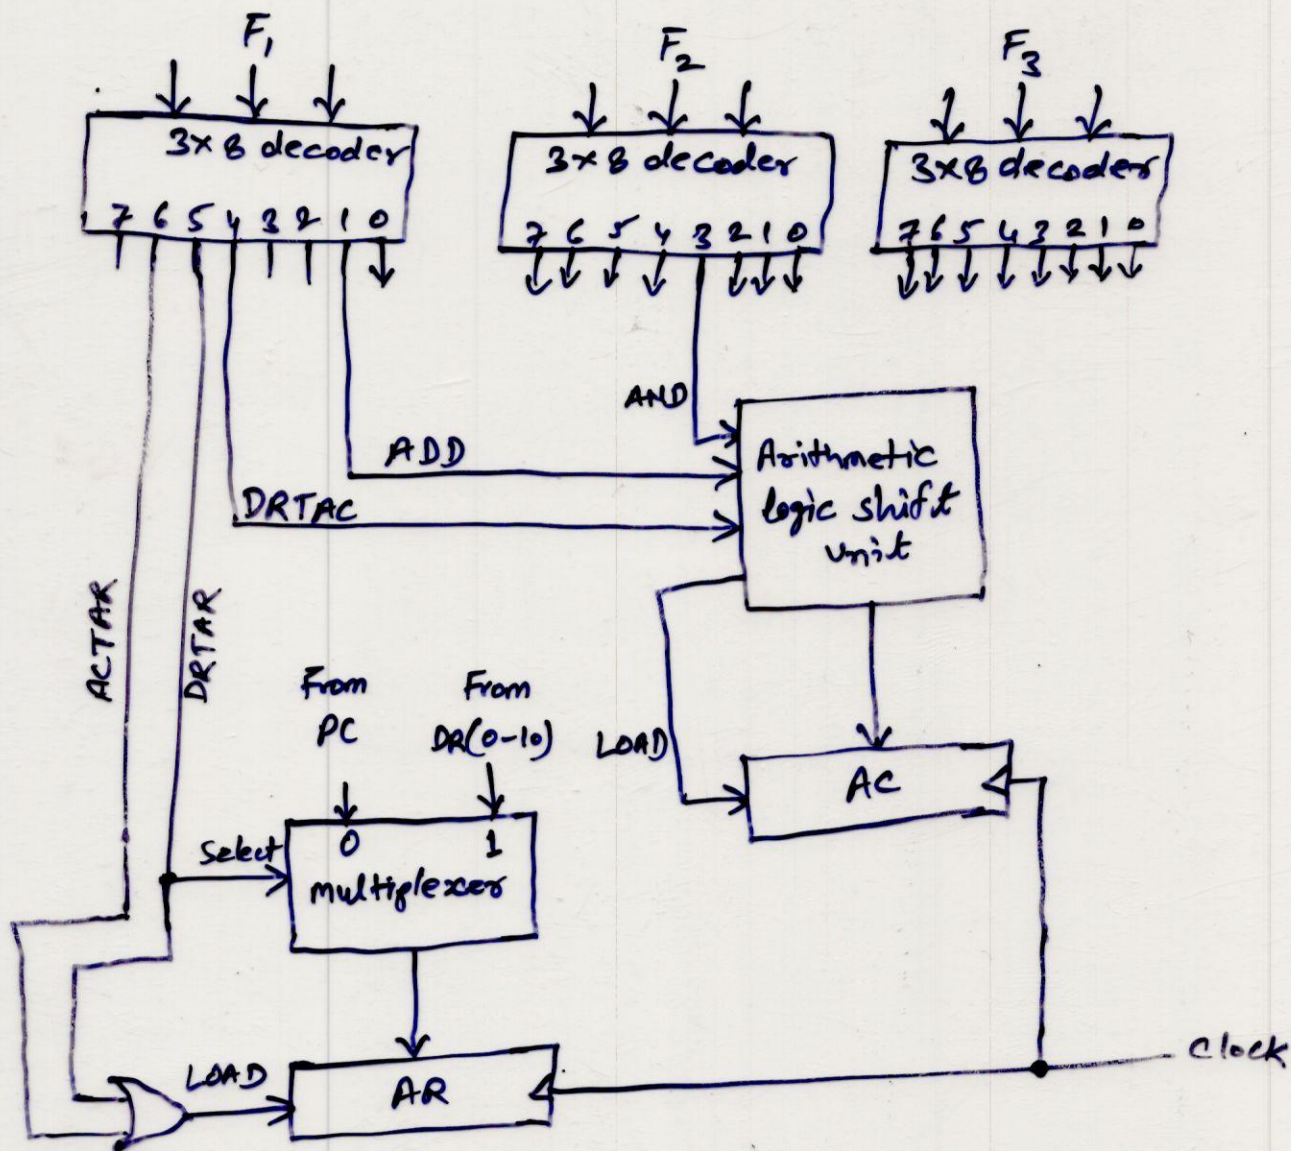 F1
F2
F3
3x8 decoder
3x8 decoder
3x8 decoder
7 6 5 4 3 2 1 0
7 6 5 4 3 2 1 0
7 6 5 4 3 2 1 0
AND
ADD
DRTAC
Arithmetic
logic shift
unit
ACTAR
DRTAR
From
PC
From
DR(0-10)
LOAD
AC
Select
0 1
multiplexer
LOAD
AR
Clock